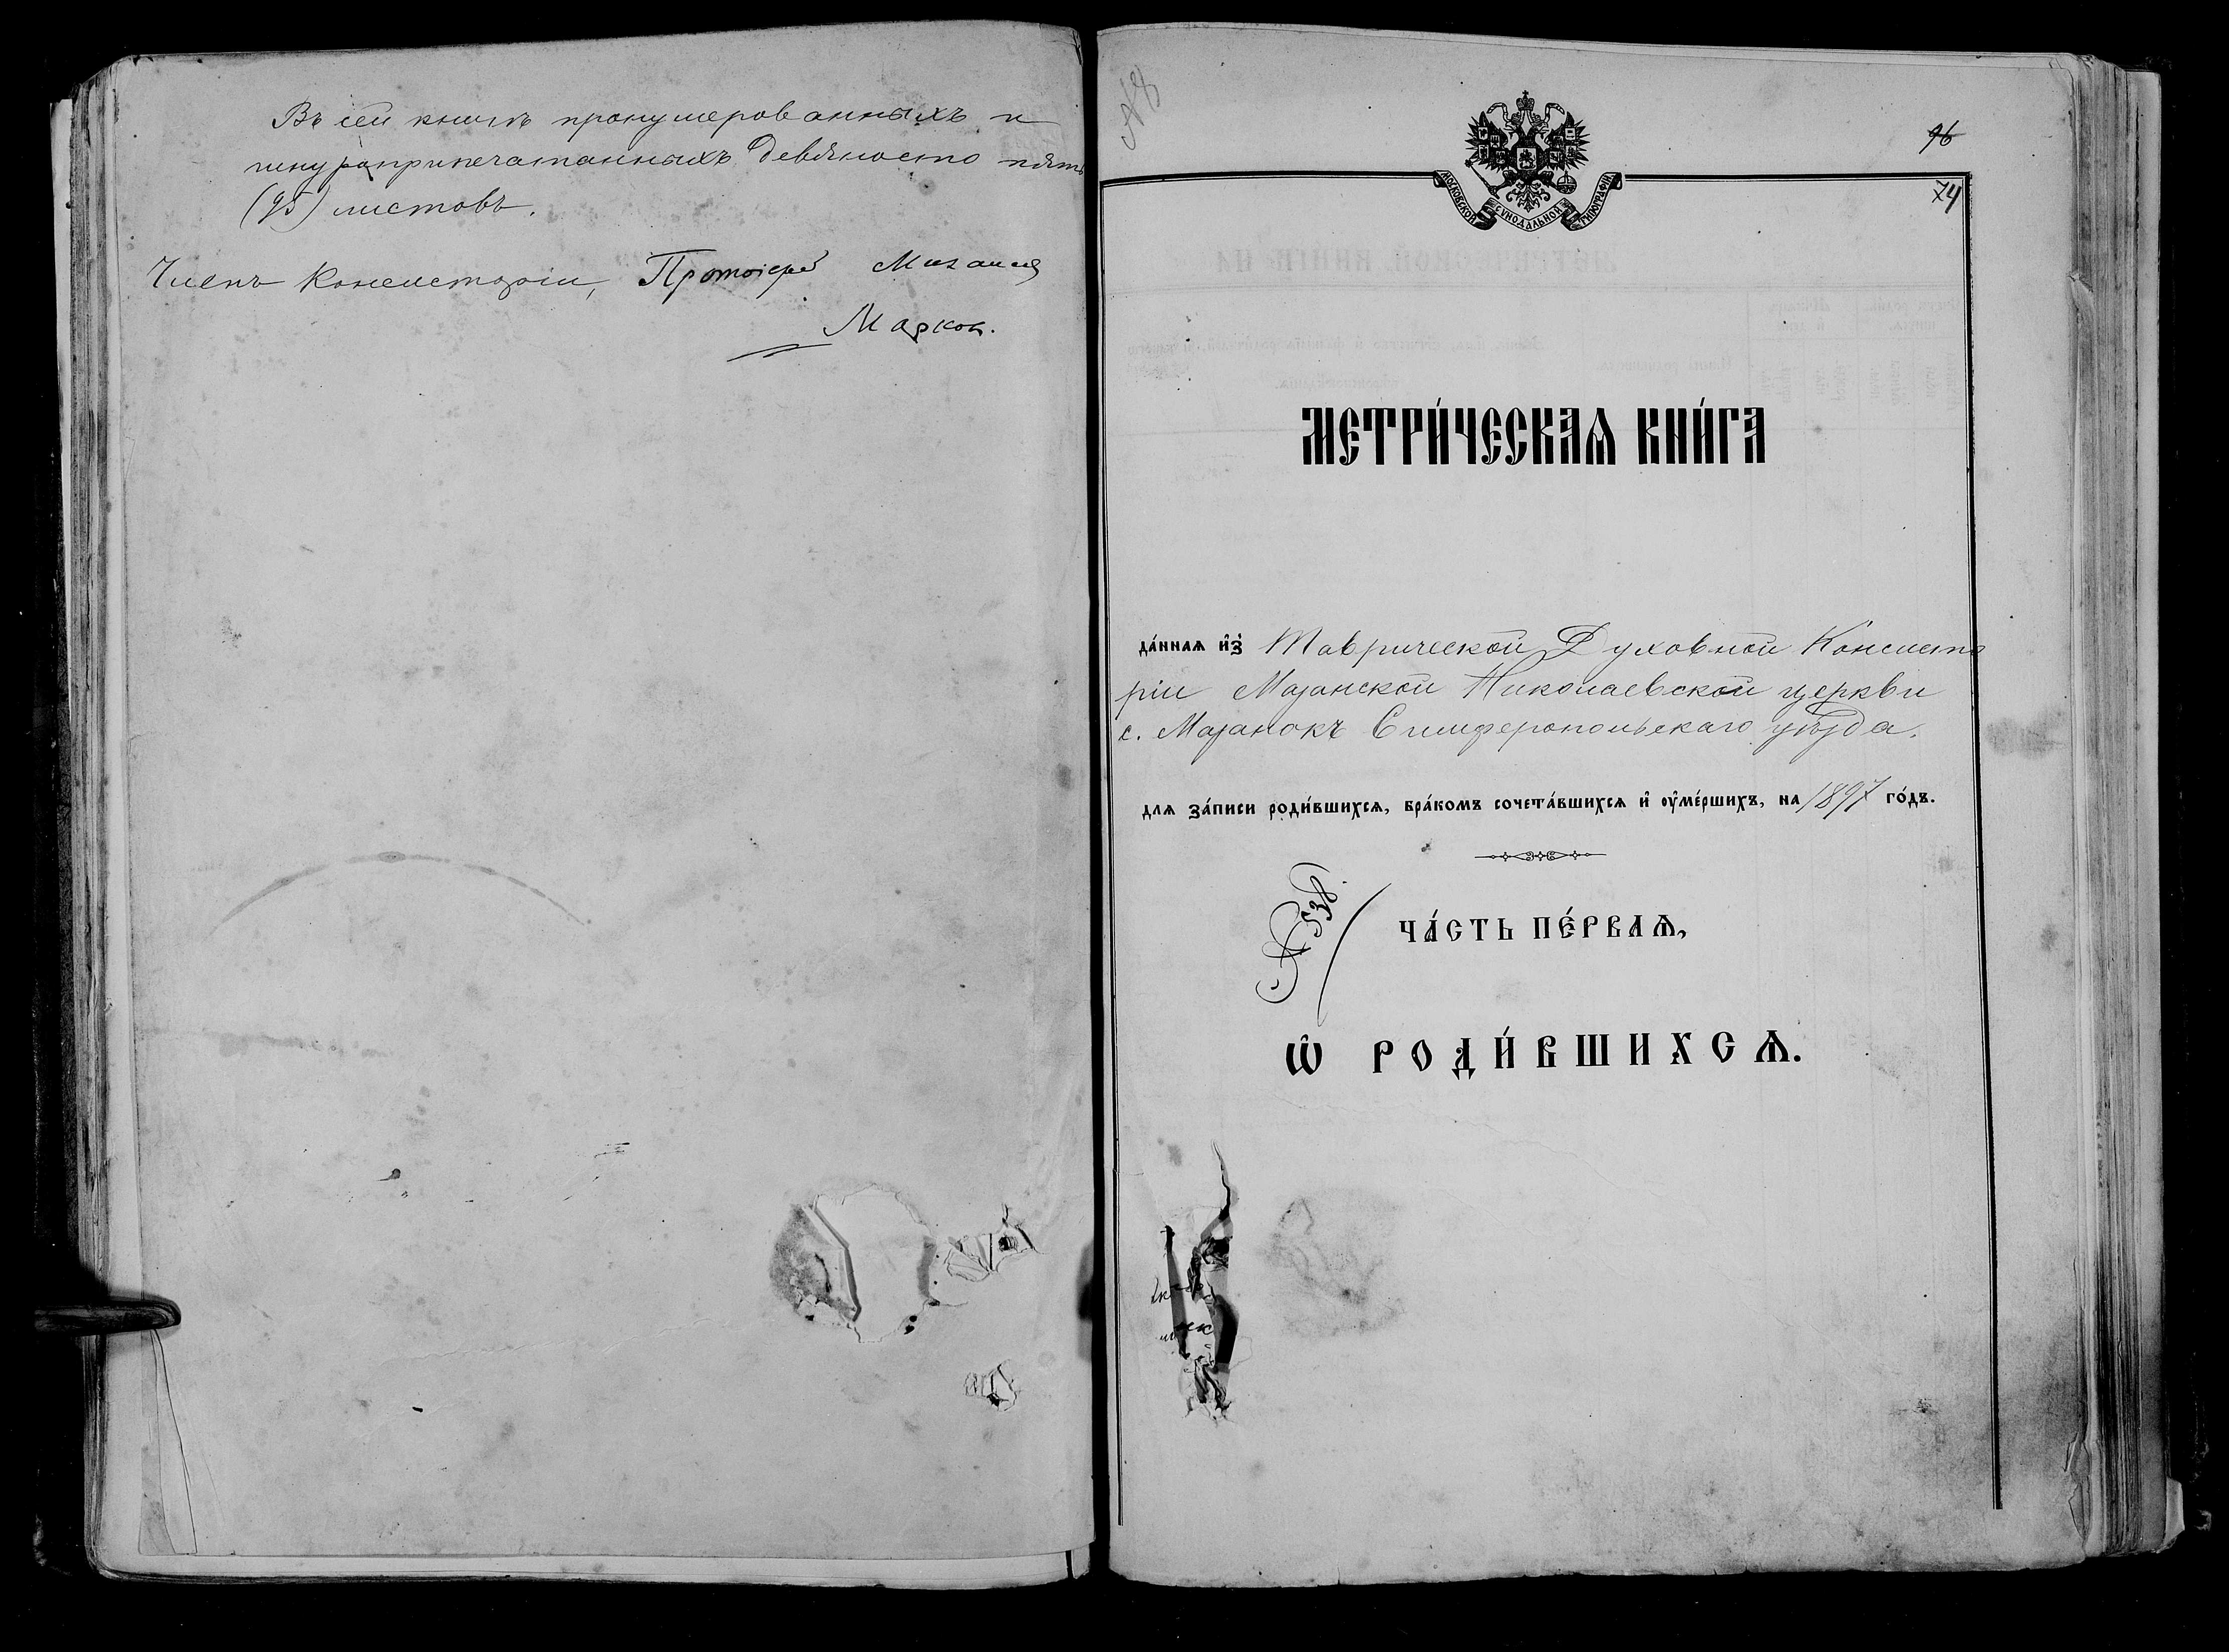 Въ сей книгѣ пронумерованныхъ и
шнуроприпечатанныхъ девяносто пять
(95) листовъ.
Членъ Консисторіи, Протоіерей Михаилъ
Марков.
№ 8
96
74
МОСКОВСКОЙ СѴНОДАЛЬНОЙ ТИПОГРАФІИ
МЕТРИ́ЧЕСКАѦ КНИ́ГА
да́ннаѧ и҆з̾ Таврической Духовной Консисто
ріи Мазанской Николаевской церкви
с. Мазанокъ Симферопольскаго уѣзда.
длѧ за́писи роди́вшихсѧ, бра́комъ сочета́вшихсѧ и҆ ѹ҆ме́ршихъ, на 1897 го́дъ.
№ 538.
ЧА́СТЬ ПЕ́РВАѦ,
Ѡ҆ РОДИ́ВШИХСѦ.